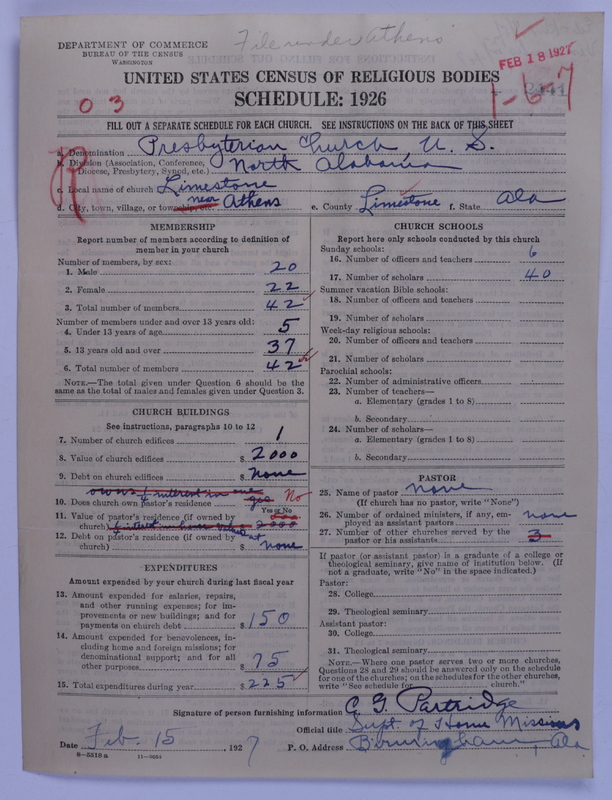 DEPARTMENT OF COMMERCE
BUREAU OF THE CENSUS
WASHINGTON
File under Athens
FEB 18 1927
UNITED STATES CENSUS OF RELIGIOUS BODIES
SCHEDULE: 1926
0 3
1-6-7
FILL OUT A SEPARATE SCHEDULE FOR EACH CHURCH. SEE INSTRUCTIONS ON THE BACK OF THIS SHEET
a. Denomination Presbyterian Church U. S.
b. Division (Association, Conference, Diocese, Presbytery, Synod, etc.) North Alabama
c. Local name of church Limestone
d. City, town, village, or township, etc. near Athens e. County Limestone f. State Ala
MEMBERSHIP
Report number of members according to definition of
member in your church
Number of members, by sex:
1. Male 20
2. Female 22
3. Total number of members 42
Number of members under and over 13 years old:
4. Under 13 years of age 5
5. 13 years old and over 37
6. Total number of members 42
NOTE.—The total given under Question 6 should be
same as the total of males and females given under Question 3.
CHURCH BUILDINGS
See instructions, paragraphs 10 to 12
7. Number of church edifices 1
8. Value of church edifices $ 2000
9. Debt on church edifices $ None
owns 1/4 interest in one
10. Does church own pastor's residence yes No
Yes or No
11. Value of pastor's residence (if owned by
church) 2000
12. Debt on pastor's residence (if owned by
church) $ none
EXPENDITURES
Amount expended by your church during last fiscal year
13. Amount expended for salaries, repairs,
and other running expenses; for im-
provements or new buildings; and for
payments on church debt $ 150
14. Amount expended for benevolences, in-
cluding home and foreign missions; for
denominational support; and for all
other purposes $ 75
15. Total expenditures during year $ 225
CHURCH SCHOOLS
Report here only schools conducted by this church
Sunday schools:
16. Number of officers and teachers 6
17. Number of scholars 40
Summer vacation Bible schools:
18. Number of officers and teachers
19. Number of scholars
Week-day religious schools:
20. Number of officers and teachers
21. Number of scholars
Parochial schools:
22. Number of administrative officers
23. Number of teachers—
a. Elementary (grades 1 to 8)
b. Secondary
24. Number of scholars—
a. Elementary (grades 1 to 8)
b. Secondary
PASTOR
25. Name of pastor none
(If church has no pastor, write "None")
26. Number of ordained ministers, if any, em-
ployed as assistant pastors none
27. Number of other churches served by the
pastor or his assistants 3
If pastor (or assistant pastor) is a graduate of a college or
theological seminary, give name of institution below. (If
not a graduate, write "No" in the space indicated.)
Pastor:
28. College
29. Theological seminary
Assistant pastor:
30. College
31. Theological seminary
NOTE.—Where one pastor serves two or more churches,
Questions 28 and 29 should be answered only on the schedule
for one of the churches; on the schedules for the other churches,
write "See schedule for church."
Signature of person furnishing information C. G. Partridge
Official title Supt. of Home Missions
Date Feb. 15, 1927 P. O. Address Birmingham, Ala
8-5519 a 11-9054